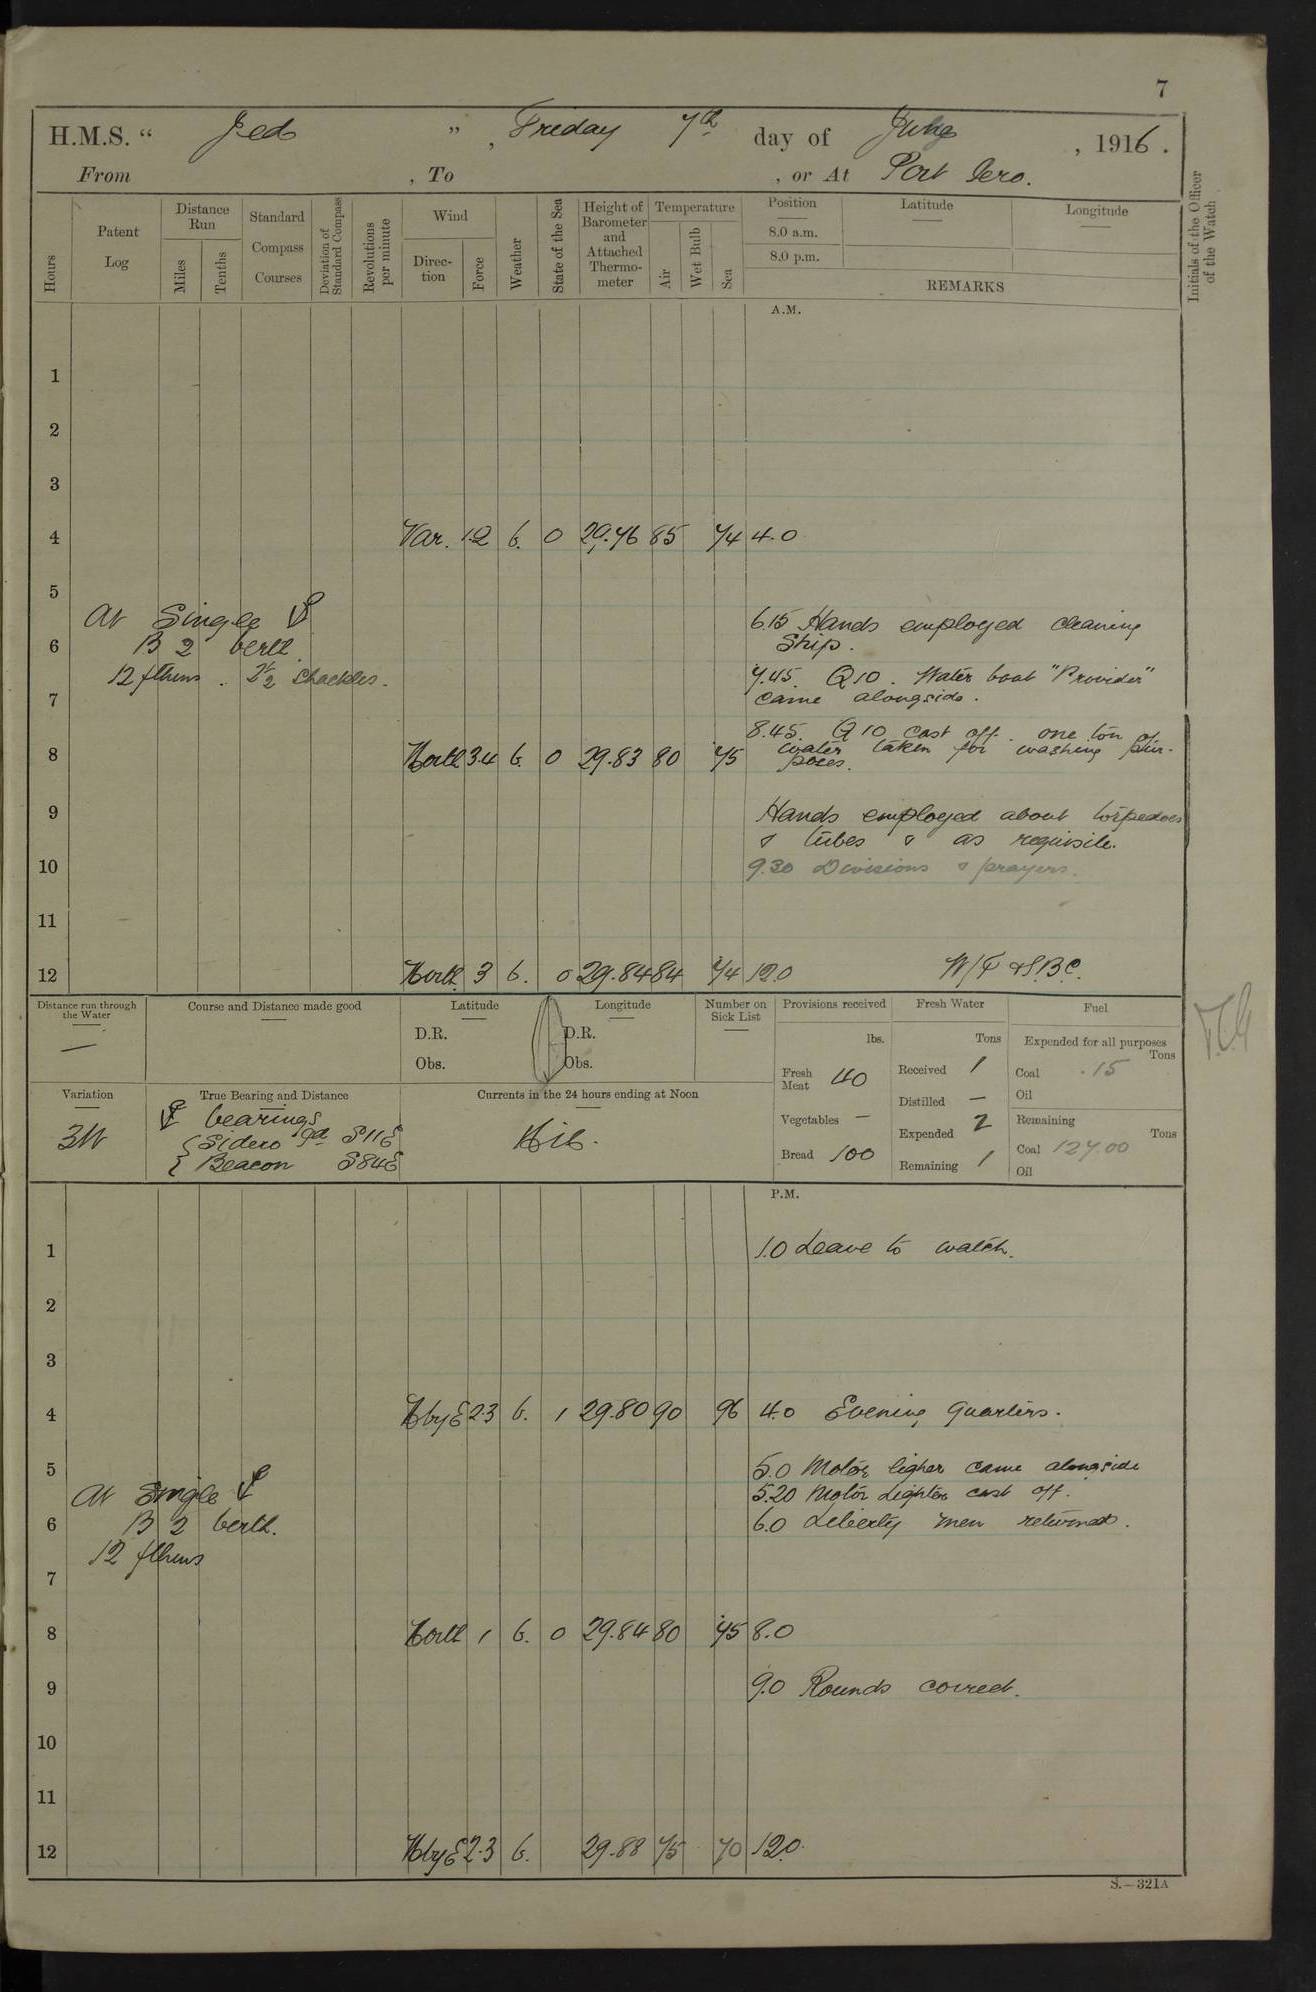 7
H.M.S. “ Jed ” , Friday 7th day of July , 1916 .
From , To , or At Port Iero.
Hours
Patent Log
Distance Run
Miles
Tenths
Standard Compass Courses
Deviation of Standard Compass
Revolutions per minute
Wind
Direction
Force
Weather
State of the Sea
Height of Barometer and Attached Thermometer
Temperature
Air
Wet Bulb
Sea
Position
8.0 a.m.
8.0 p.m.
Latitude
Longitude
REMARKS
Initials of the Officer of the Watch
A.M.
1
2
3
4 Var. 1.2 b. 0 29.76 85 74 4.0
5
At Single
6.15 Hands employed cleaning
6 B 2 berth
Ship.
12 fthms . 2½ Shackles.
7.45 Q10. Water boat "Provider"
7 came alongside.
8.45. Q10 cast off. one ton of
8 North 3.4 b. 0 29.83 80 75 water taken for washing pur-
poses.
9 Hands employed about torpedoes
& tubes & as requisite.
10 9.30 Divisions & prayers.
11
12 North 3 b. 0 29.84 84 74 12.0 W/T & S.B.C.
Distance run through the Water
—
Course and Distance made good
Latitude
D.R.
Obs.
Longitude
D.R.
Obs.
Number on Sick List
Provisions received
lbs.
Fresh Meat 40
Vegetables —
Bread 100
Fresh Water
Tons
Received 1
Distilled —
Expended 2
Remaining 1
Fuel
Expended for all purposes
Tons
Coal .15
Oil
Remaining
Tons
Coal 127.00
Oil
Variation
3W
True Bearing and Distance
bearings
Sidero Id S11E
Beacon S84E
Currents in the 24 hours ending at Noon
Nil.
P.M.
1 1.0 Leave to watch.
2
3
4 NbyE 2.3 b. 1 29.80 90 96 4.0 Evening Quarters.
5 5.0 Motor ligher came alongside
At Single
5.20 Motor Lighter cast off.
6 B 2 berth. 6.0 Liberty men returned.
12 fthms
7
8 North 1 b. 0 29.84 80 75 8.0
9 9.0 Rounds correct.
10
11
12 NbyE 2.3 b. 29.88 75 70 12.0
S.—321A